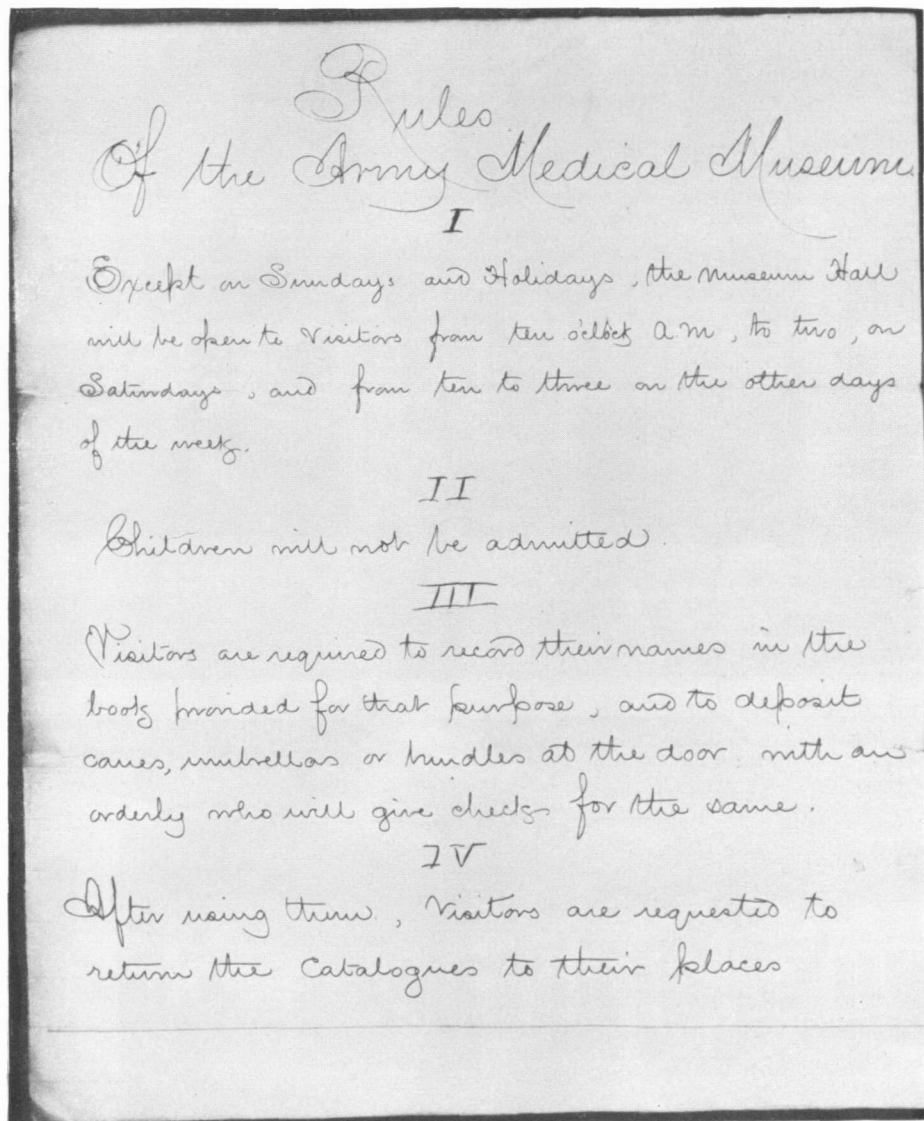 Rules
Of the Army Medical Museum
I
Except on Sundays and Holidays, the Museum Hall
will be open to Visitors from ten o'clock A M, to two, on
Saturdays, and from ten to three on the other days
of the week.
II
Children will not be admitted.
III
Visitors are required to record their names in the
book provided for that purpose, and to deposit
canes, umbrellas or bundles at the door with an
orderly who will give checks for the same.
IV
After using them, Visitors are requested to
return the Catalogues to their places